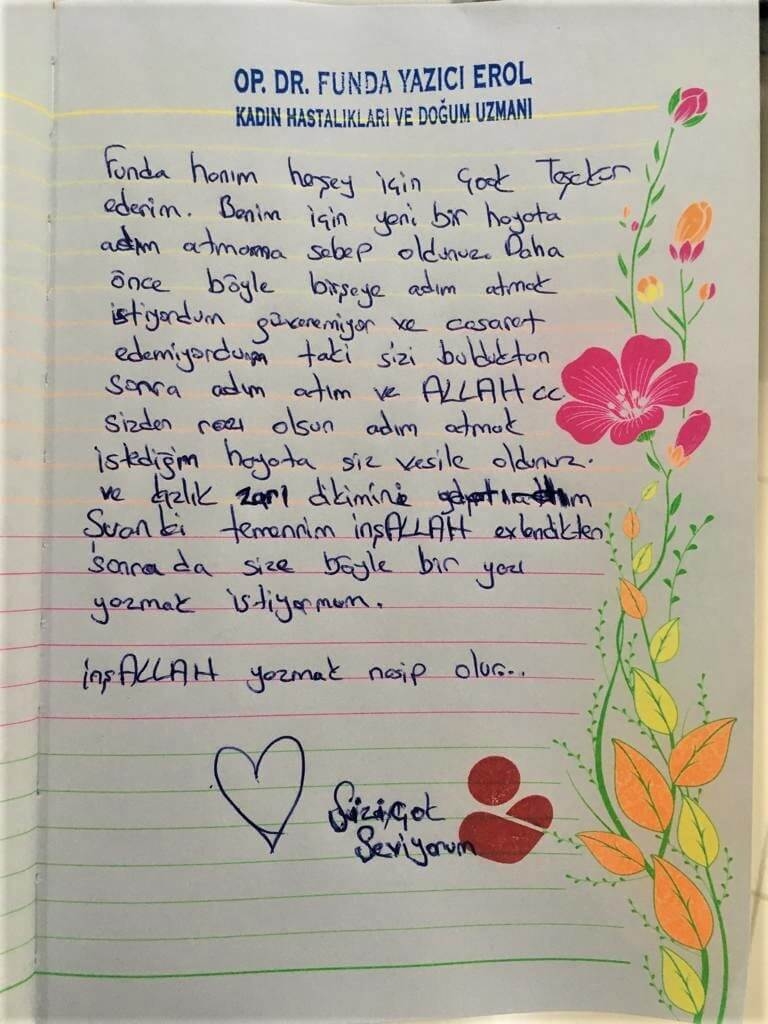 OP. DR. FUNDA YAZICI EROL
KADIN HASTALIKLARI VE DOĞUM UZMANI
Funda hanım herşey için Çook Teşekkür
ederim. Benim için yeni bir hayata
adım atmama sebep oldunuz. Daha
önce böyle birşeye adım atmak
istiyordum güvenemiyor ve cesaret
edemiyordum taki sizi bulduktan
sonra adım atım ve ALLAH cc
sizden razı olsun adım atmak
istediğim hayata siz vesile oldunuz.
ve kızlık zarı dikimini
Şuan ki temennim inşALLAH evlendikten
sonra da size böyle bir yazı
yazmak istiyorum.
inşALLAH yazmak nasip olur...
Sizi Çok
Seviyorum